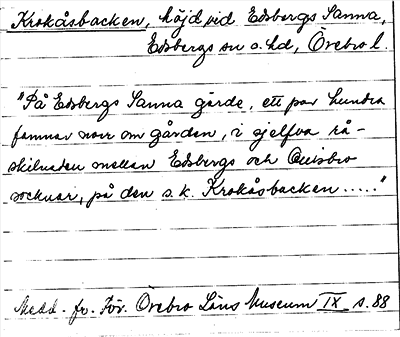 Krokåsbacken, höjd vid Edsbergs Sanna,
Edsbergs sn o. hd, Örebro l.
"På Edsbergs Sanna gärde, ett par hundra
famnar norr om gården, i sjelfva rå-
skilnaden mellan Edsbergs och Quisbro
socknar, på den s.k. Krokåsbacken ....."
Medd. fr. För. Örebro Läns Museum IX s. 88